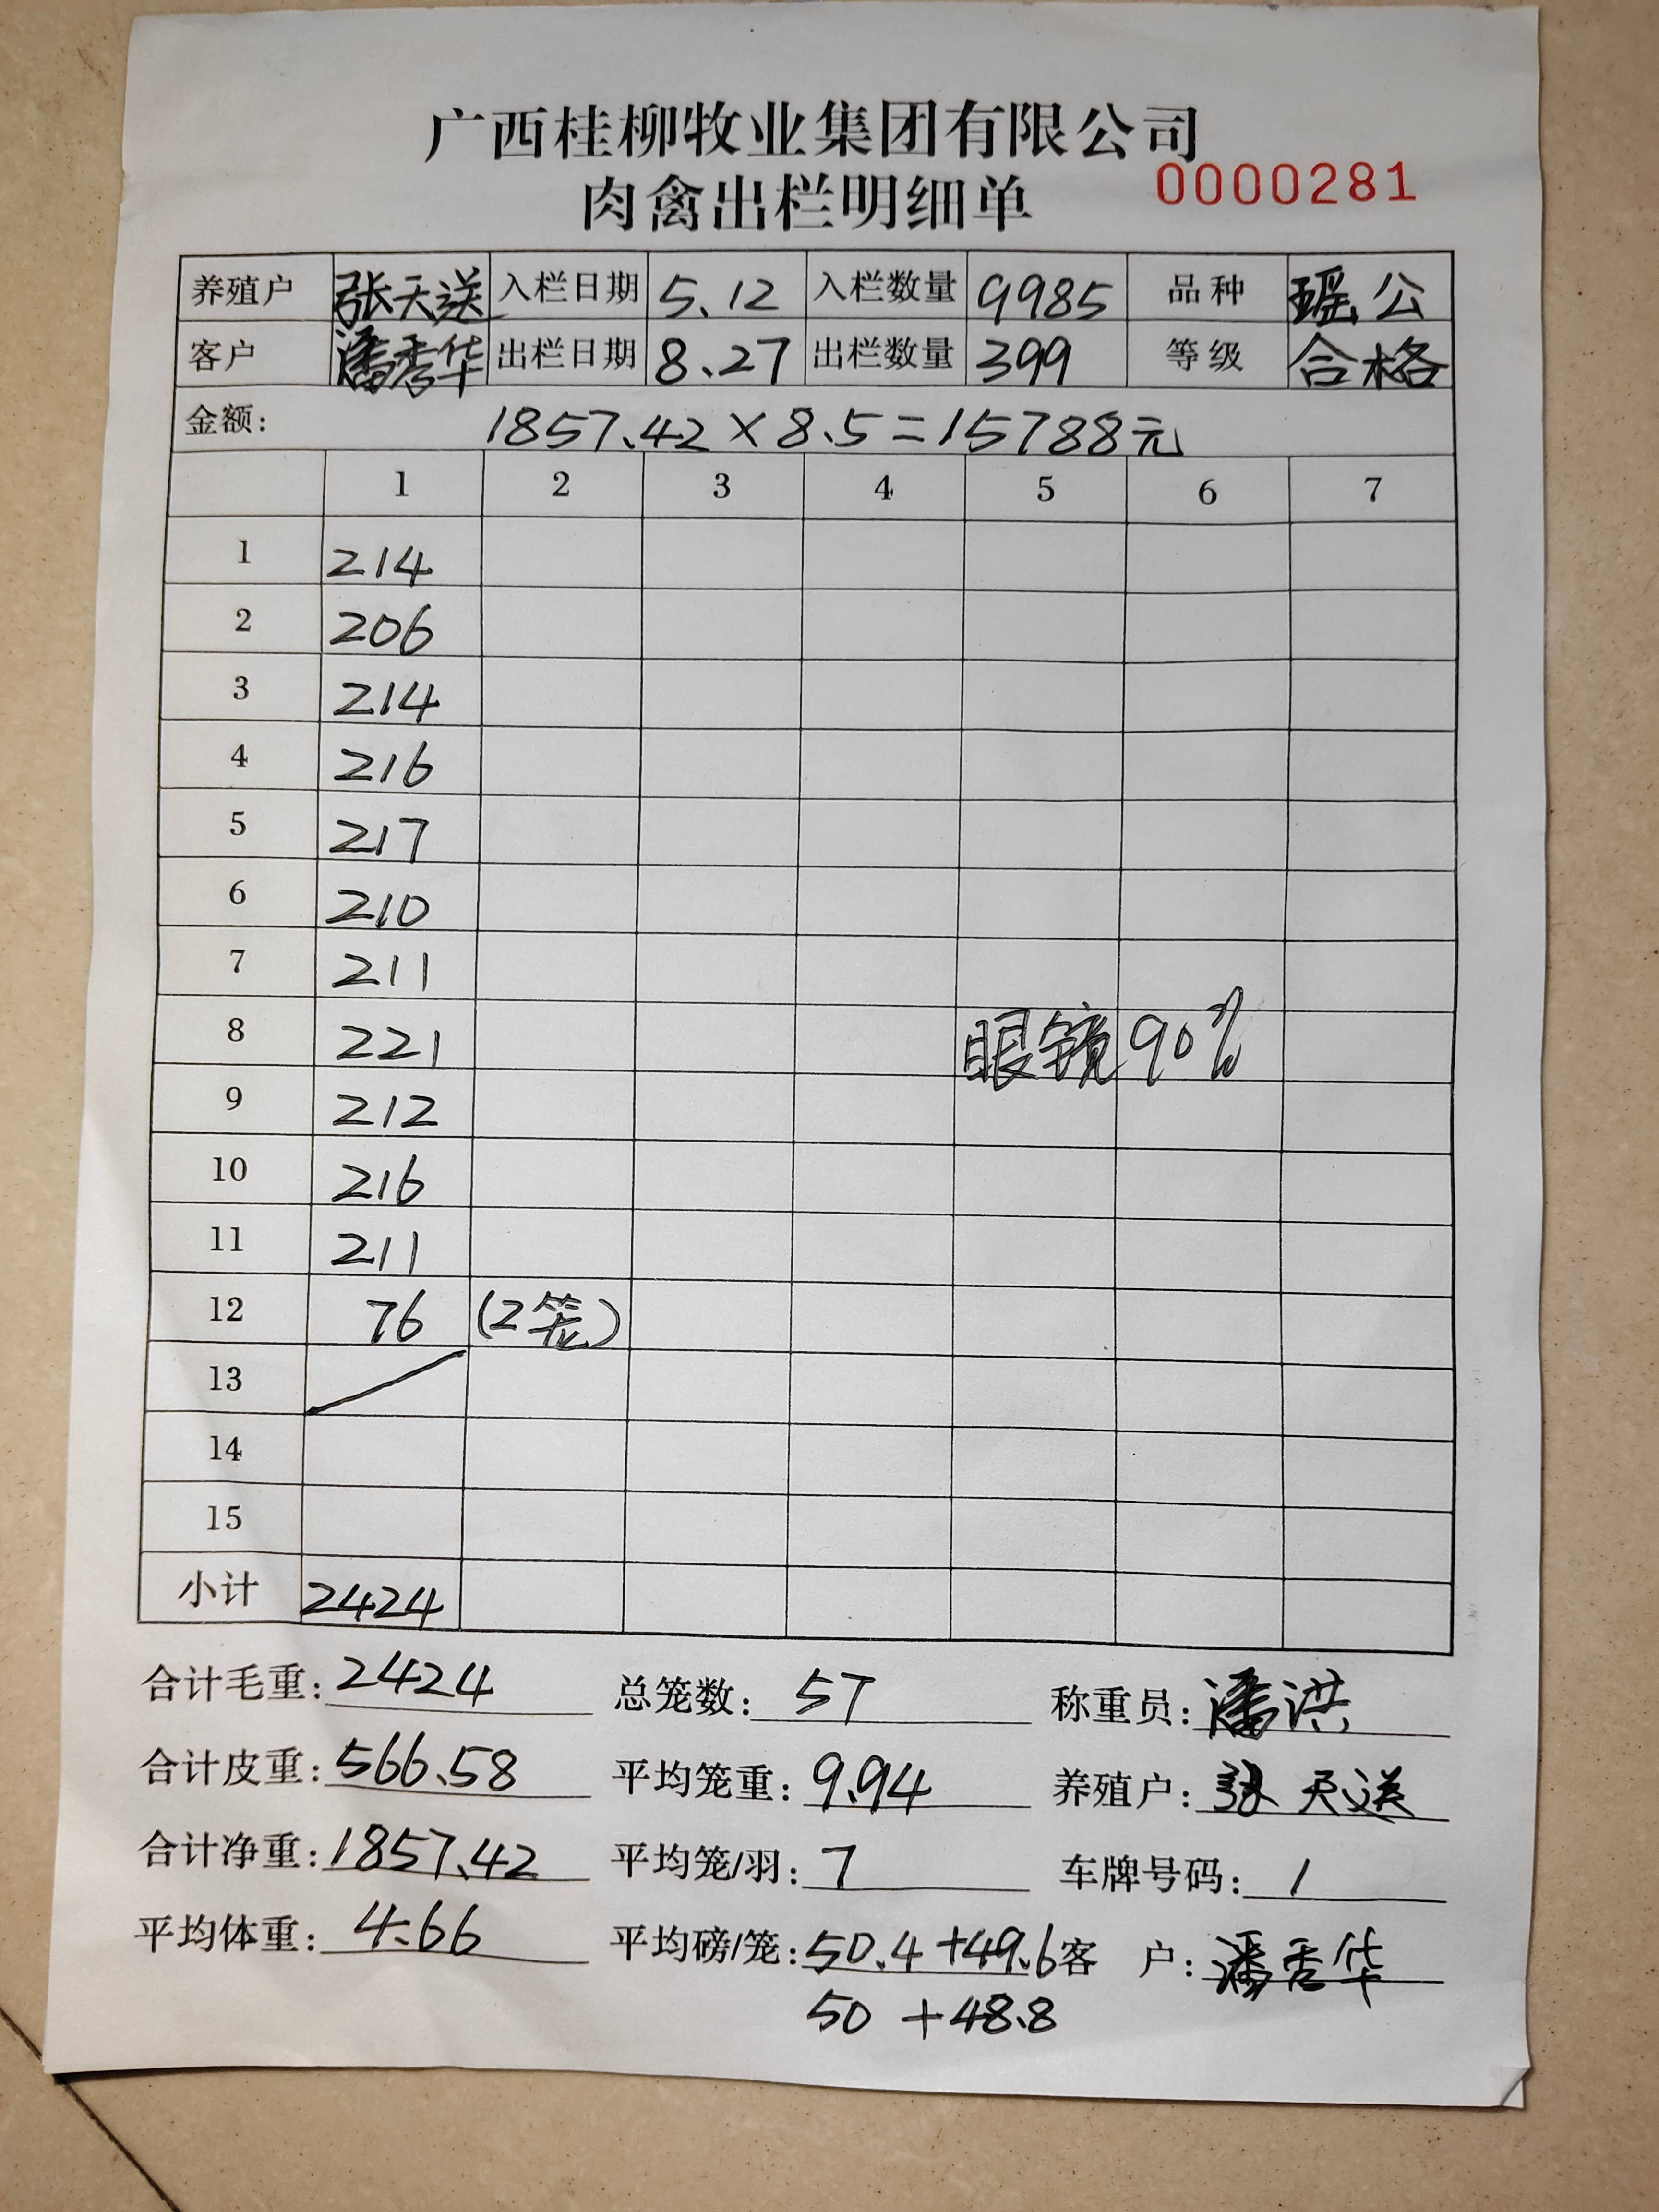 广西桂柳牧业集团有限公司
肉禽出栏明细单 0000281
养殖户 张天送 入栏日期 5.12 入栏数量 9985 品种 瑶公
客户 潘秀华 出栏日期 8.27 出栏数量 399 等级 合格
金额: 1857.42×8.5=15788元
1 2 3 4 5 6 7
1 214
2 206
3 214
4 216
5 217
6 210
7 211
8 221 眼镜90%
9 212
10 216
11 211
12 76 (2笼)
13
14
15
小计 2424
合计毛重: 2424 总笼数: 57 称重员: 潘洪
合计皮重: 566.58 平均笼重: 9.94 养殖户: 张天送
合计净重: 1857.42 平均笼/羽: 7 车牌号码: 1
平均体重: 4.66 平均磅/笼: 50.4+49.6 客 户: 潘秀华
50 +48.8